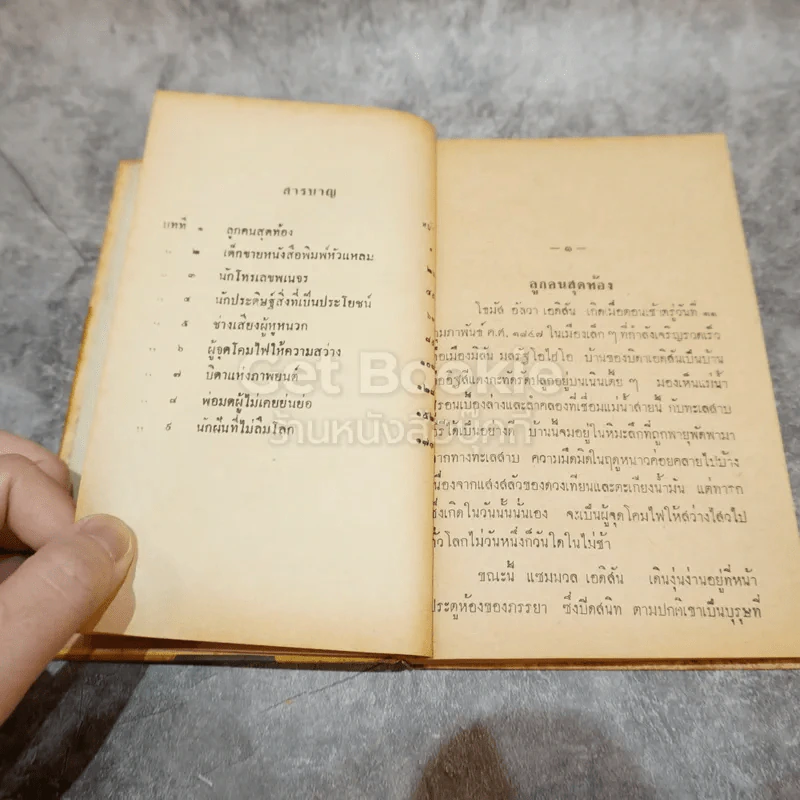 สารบาญ
บทที่ ๑ ลูกคนสุดท้อง
" ๒ เด็กขายหนังสือพิมพ์หัวแหลม
" ๓ นักโทรเลขพเนจร
" ๔ นักประดิษฐ์สิ่งที่เป็นประโยชน์
" ๕ ช่างเสียงผู้หูหนวก
" ๖ ผู้จุดโคมไฟให้ความสว่าง
" ๗ บิดาแห่งภาพยนต์
" ๘ พ่อมดผู้ไม่เคยย่นย่อ
" ๙ นักฝันที่ไม่ลืมโลก
— ๑ —
ลูกคนสุดท้อง
โธมัส อัลวา เอดิสัน เกิดเมื่อตอนเช้าตรู่วันที่ ๑๑
กุมภาพันธ์ ค.ศ. ๑๘๔๗ ในเมืองเล็ก ๆ ที่กำลังเจริญรวดเร็ว
เมืองมิลัน มลรัฐโอไฮโอ บ้านของบิดาเอดิสันเป็นบ้าน
อิฐสีแดงกะทัดรัดปลูกอยู่บนเนินเตี้ย ๆ มองเห็นแม่น้ำ
ฮูรอนเบื้องล่างและลำคลองที่เชื่อมแม่น้ำสายนี้ กับทะเลสาบ
ได้เป็นอย่างดี บ้านนี้จมอยู่ในหิมะลึกที่ถูกพายุพัดพามา
จากทางทะเลสาบ ความมืดมิดในฤดูหนาวค่อยคลายไปบ้าง
เนื่องจากแสงสลัวของดวงเทียนและตะเกียงน้ำมัน แต่ทารก
ซึ่งเกิดในวันนั้นนั่นเอง จะเป็นผู้จุดโคมไฟให้สว่างไสวไป
ทั่วโลกไม่วันหนึ่งก็วันใดในไม่ช้า
ขณะนี้ แซมมวล เอดิสัน เดินงุ่นง่านอยู่ที่หน้า
ประตูห้องของภรรยา ซึ่งปิดสนิท ตามปกติเขาเป็นบุรุษที่
Get Bookie
ร้านหนังสือที่